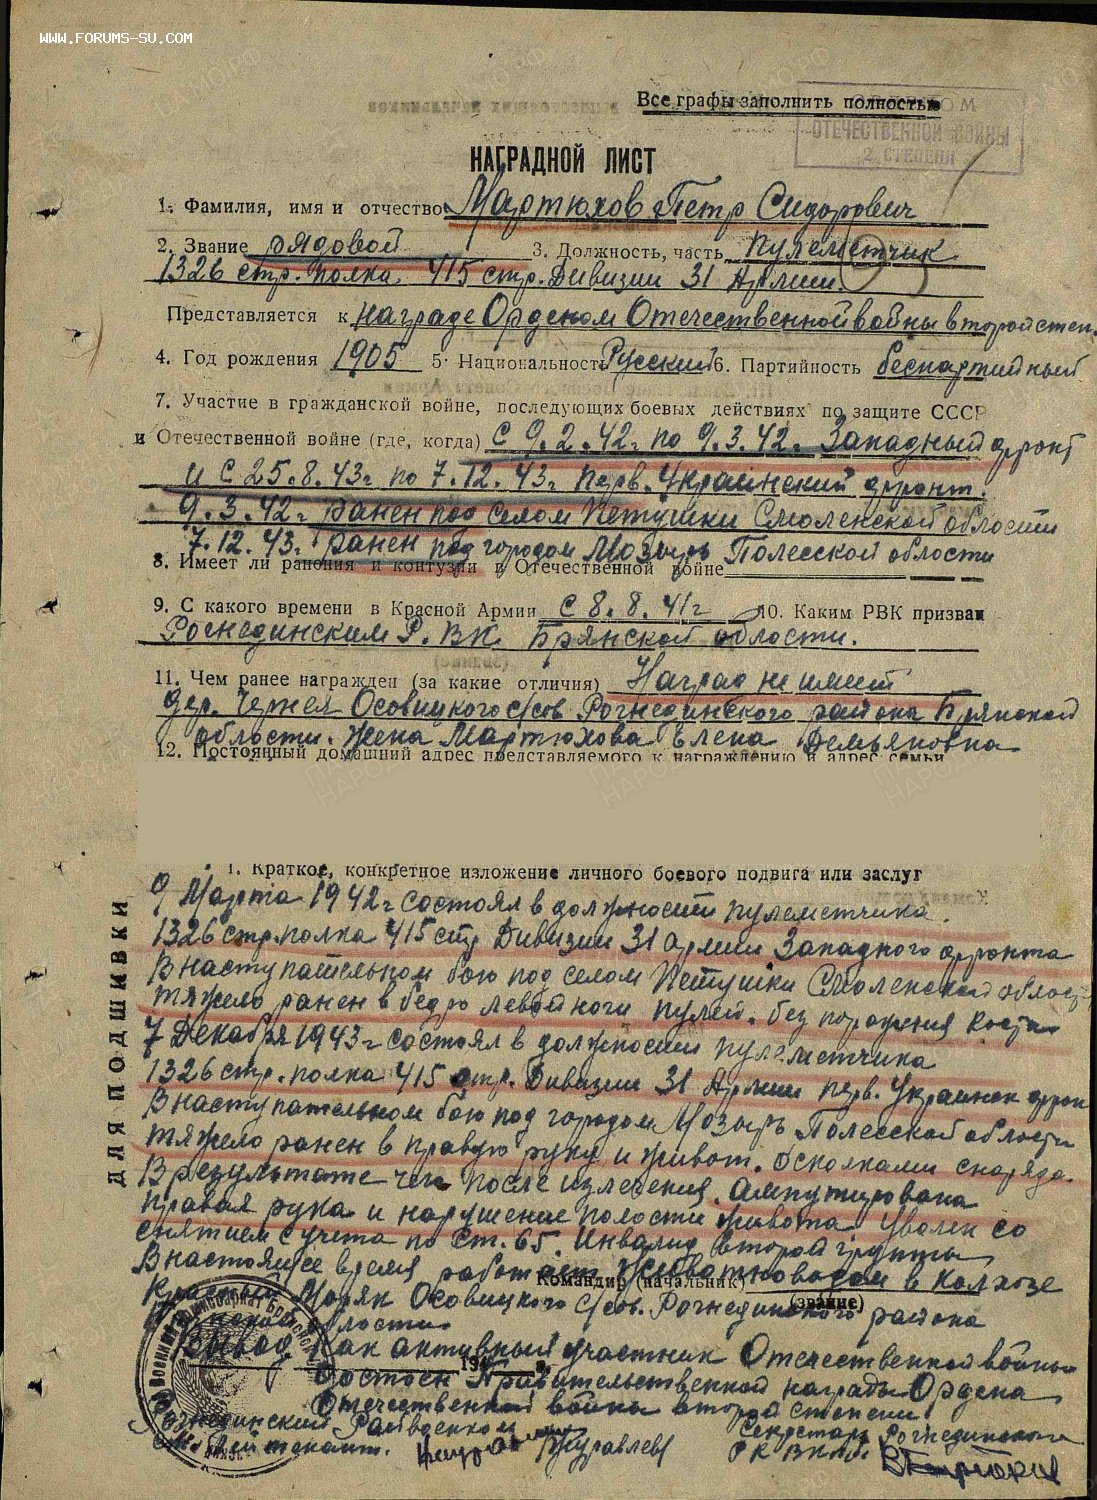 WWW.FORUMS-SU.COM
Все графы заполнить полностью
ОРДЕНОМ
ОТЕЧЕСТВЕННОЙ ВОЙНЫ
2 СТЕПЕНИ
НАГРАДНОЙ ЛИСТ
1. Фамилия, имя и отчество Мартюхов Петр Сидорович
2. Звание рядовой 3. Должность, часть пулеметчик
1326 стр. полка 415 стр. Дивизии 31 Армии.
Представляется к награде Орденом Отечественной войны второй степ.
4. Год рождения 1905 5. Национальность Русский 6. Партийность беспартийный
7. Участие в гражданской войне, последующих боевых действиях по защите СССР
и Отечественной войне (где, когда) с 9.2.42г по 9.3.42г. Западный фронт
и с 25.8.43г по 7.12.43г Перв. Украинский фронт.
9.3.42г ранен под селом Петушки Смоленской области
7.12.43г ранен под городом Мозырь Полесской области
8. Имеет ли ранения и контузии в Отечественной войне
9. С какого времени в Красной Армии с 8.8.41г 10. Каким РВК призван
Рогнединским Р.ВК Брянской области.
11. Чем ранее награжден (за какие отличия) Наград не имеет
дер. Чернея Осовицкого с/сов Рогнединского района Брянской
области. Жена Мартюхова Елена Демьяновна
12. Постоянный домашний адрес представляемого к награждению и адрес семьи
1. Краткое, конкретное изложение личного боевого подвига или заслуг
9 Марта 1942г состоял в должности пулеметчика.
1326 стр полка 415 стр Дивизии 31 армии Западного фронта
В наступательном бою под селом Петушки Смоленской област
тяжело ранен в бедро левой ноги пулей. без поражения кости
7 Декабря 1943г состоял в должности пулеметчика
1326 стр. полка 415 стр. Дивизии 31 Армии перв. Украинск фрон
В наступательном бою под городом Мозырь Полесской области
тяжело ранен в правую руку и живот. осколками снаряда.
В результате чего после излечения. Ампутирована
правая рука и нарушение полости живота Уволен со
снятием с учета по ст. 65. Инвалид второй группы
В настоящее время работает Животноводом в Колхозе
Командир (начальник)
Красный Моряк Осовицкого с/сов. Рогнединского района
(звание)
Брянской области
Вывод Как активный участник Отечественной войны
194 г.
Достоен Правительственной награды Ордена
Отечественной войны второй степени.
Рогнединский Райвоенком
Лейтенант. Журавлев
Секретарь Рогнединского
РК ВКП(б)
ДЛЯ ПОДШИВКИ